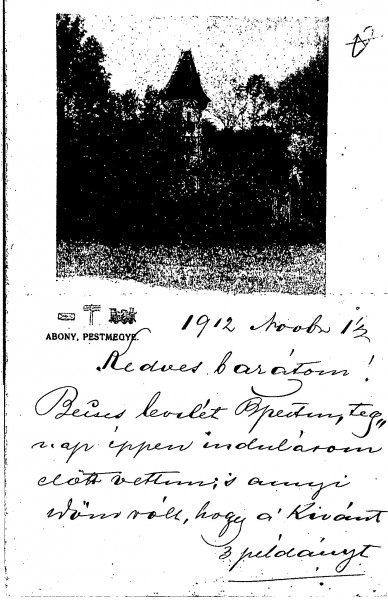 ABONY, PESTMEGYE.
1912 Novbr 1/2
Kedves barátom!
Becses levelét Bpesten, teg„
nap éppen indulásom
előtt vettem, s annyi
időm vólt, hogy a Kivánt
3 példányt